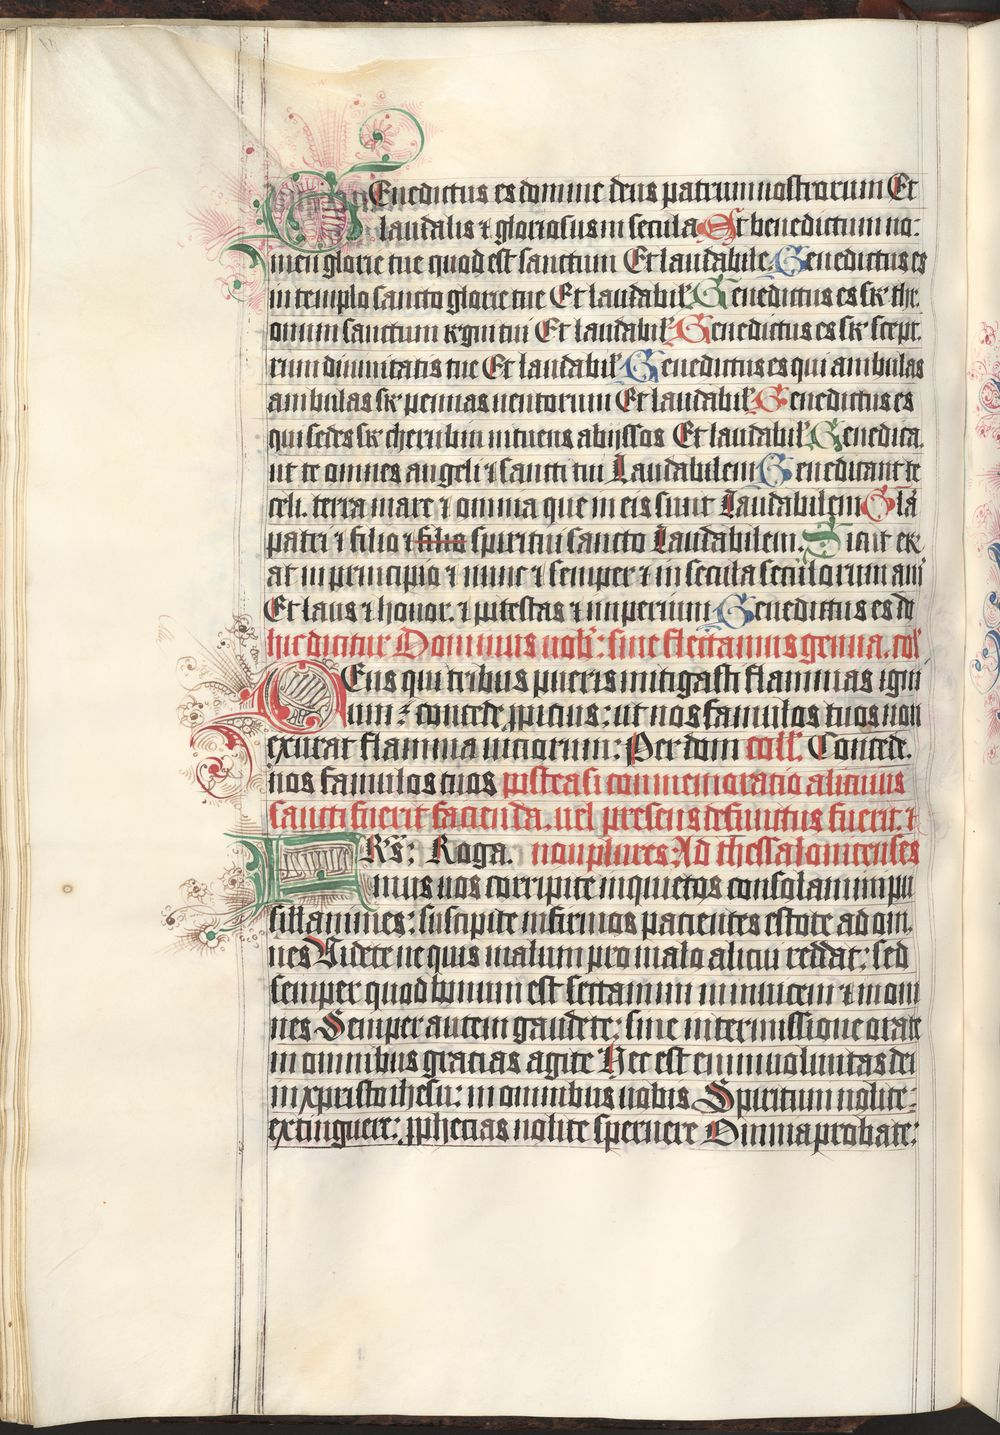 Benedictus es domine deus patrum nostrorum Et
laudalis ⁊ gloriosus in secula Et benedictum no:
men glorie tue quod est sanctum Et laudabile Benedictus es
in templo sancto glorie tue Et laudabil' Benedictus es sr̄ thr
onum sanctum regni tui Et laudabil' Benedictus es sr̄ scept
rum diuinitatis tue Et laudabil' Benedictus es qui ambulas
ambulas sr̄ pennas uentorum Et laudabil' Benedictus es
qui sedes sr̄ cherubin intuens abyssos Et laudabil' Benedica
nt te omnes angeli ⁊ sancti tui Laudabilem Benedicant te
celi. terra mare ⁊ omnia que in eis sunt Laudabilem Gl̄a
patri ⁊ filio ⁊ filio spiritui sancto Laudabilem. Sicut er
at in principio ⁊ nunc ⁊ semper ⁊ in secula seculorum am̄
Et laus ⁊ honor. ⁊ potestas ⁊ imperium Benedictus es do
hic dicitur Dominus uob': sine flectamus genua. col'
Deus qui tribus pueris mitigasti flammas igni
um: concede ꝓpicius: ut nos famulos tuos non
exurat flamma uiciorum: Per dom coll'. Concede.
nos famulos tuos postea si commemoratio alicuius
sancti fuerit facienda. uel presens defunctus fuerit. ⁊
Frs̄: Roga. non plures Ad thessalonicenses
mus uos corripite inquietos consolamini pu
sillanimes: suscipite infirmos pacientes estote ad om.
nes Videte ne quis malum pro malo alicui reddat: sed
semper quod bonum est sectamini inuicem ⁊ in om
nes Semper autem gaudete: sine intermissione orate
in omnibus gracias agite Hec est enim uoluntas dei
in xpristo ihesu: in omnibus uobis Spiritum nolite
extinguere: ꝓphecias nolite spernere Omnia probate: